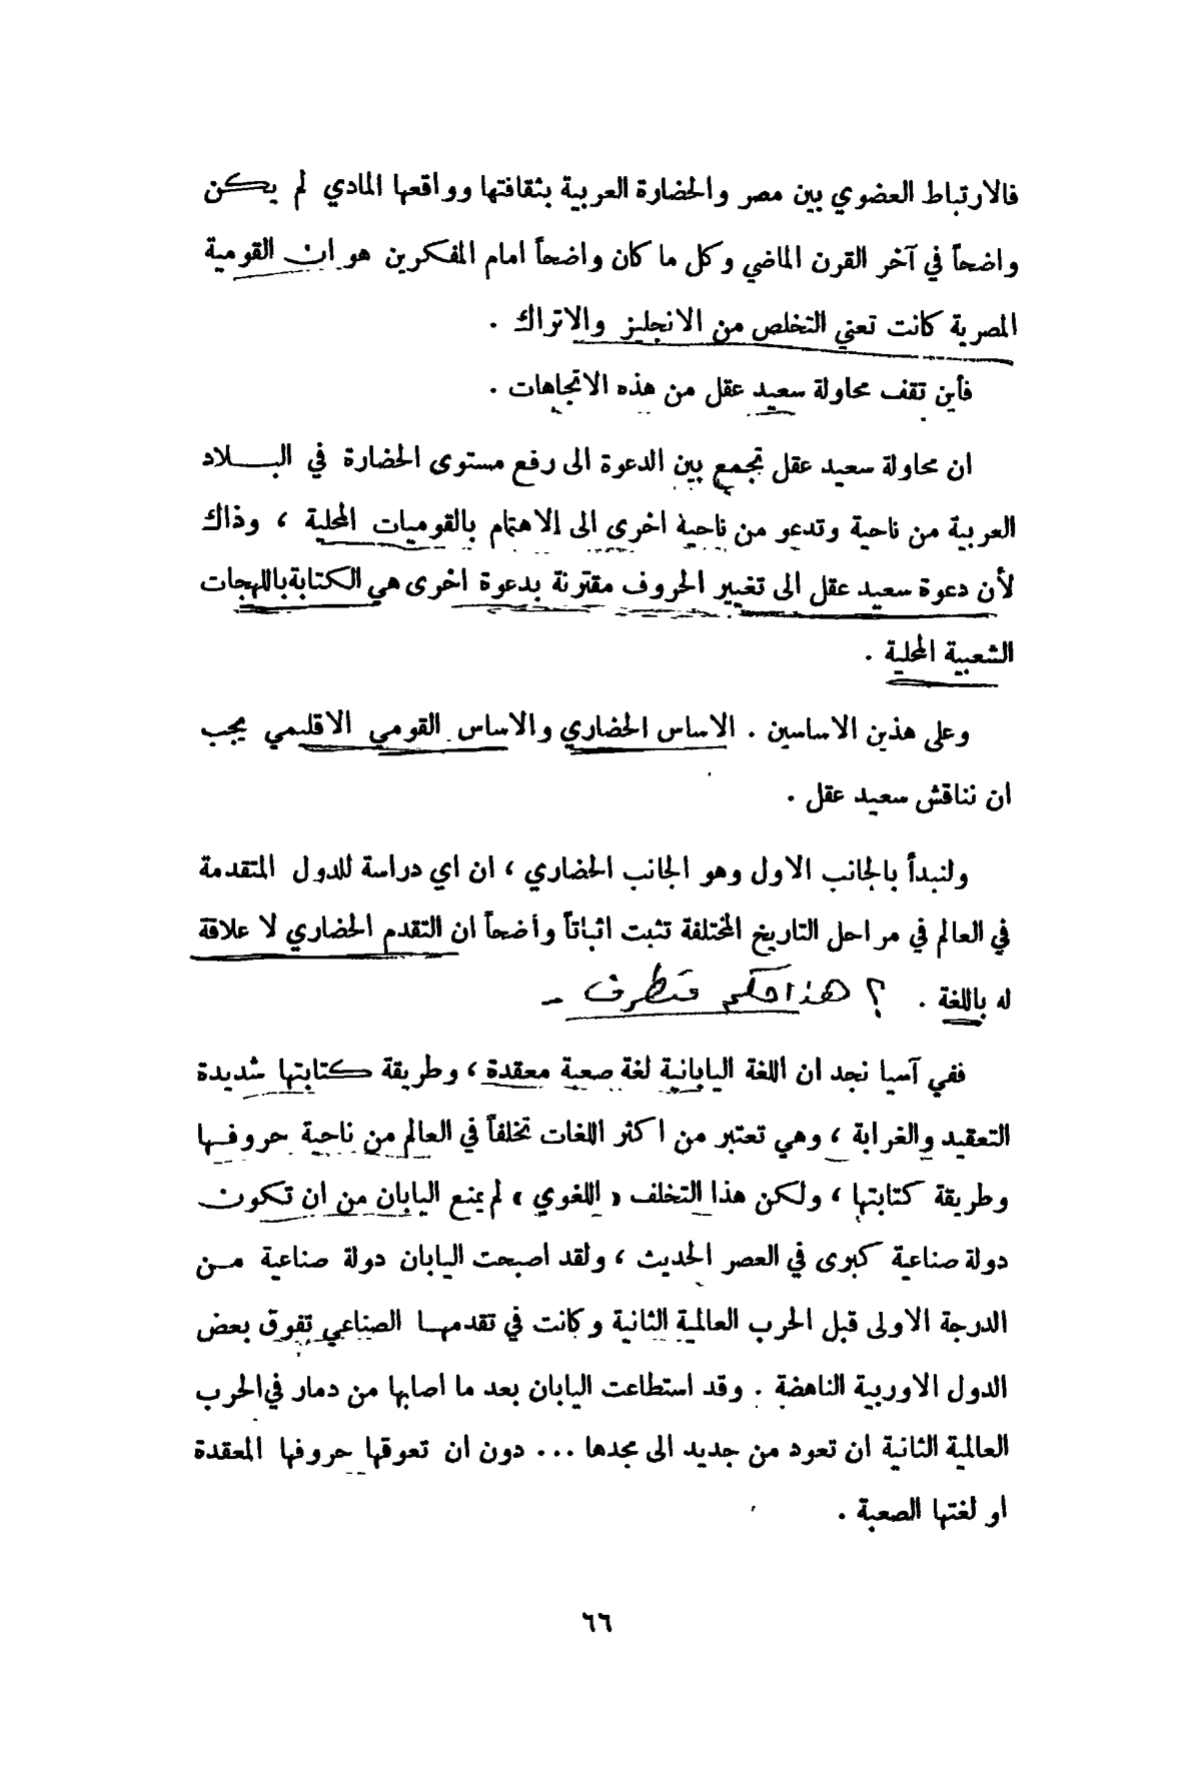 فالارتباط العضوي بين مصر والحضارة العربية بثقافتها وواقعها المادي لم يكن
واضحاً في آخر القرن الماضي وكل ما كان واضحاً امام المفكرين هو ان القومية
المصرية كانت تعني التخلص من الانجليز والاتراك .
فأين تقف محاولة سعيد عقل من هذه الاتجاهات .
ان محاولة سعيد عقل تجمع بين الدعوة الى رفع مستوى الحضارة في البـــلاد
العربية من ناحية وتدعو من ناحية اخرى الى الاهتمام بالقوميات المحلية ، وذاك
لأن دعوة سعيد عقل الى تغيير الحروف مقترنة بدعوة اخرى هي الكتابة باللهجات
الشعبية المحلية .
وعلى هذين الاساسين . الاساس الحضاري والاساس القومي الاقليمي يجب
ان نناقش سعيد عقل .
ولنبدأ بالجانب الاول وهو الجانب الحضاري ، ان اي دراسة للدول المتقدمة
في العالم في مراحل التاريخ المختلفة تثبت اثباتاً واضحاً ان التقدم الحضاري لا علاقة
له باللغة . ؟ هذا حكم متطرف -
ففي آسيا نجد ان اللغة اليابانية لغة صعبة معقدة ، وطريقة كتابتها شديدة
التعقيد والغرابة ، وهي تعتبر من اكثر اللغات تخلفاً في العالم من ناحية حروفـها
وطريقة كتابتها ، ولكن هذا التخلف « اللغوي » لم يمنع اليابان من ان تكون
دولة صناعية كبرى في العصر الحديث ، ولقد اصبحت اليابان دولة صناعية مـن
الدرجة الاولى قبل الحرب العالمية الثانية وكانت في تقدمهـا الصناعي تفوق بعض
الدول الاوربية الناهضة . وقد استطاعت اليابان بعد ما اصابها من دمار في الحرب
العالمية الثانية ان تعود من جديد الى مجدها ... دون ان تعوقها حروفها المعقدة
او لغتها الصعبة .
٦٦